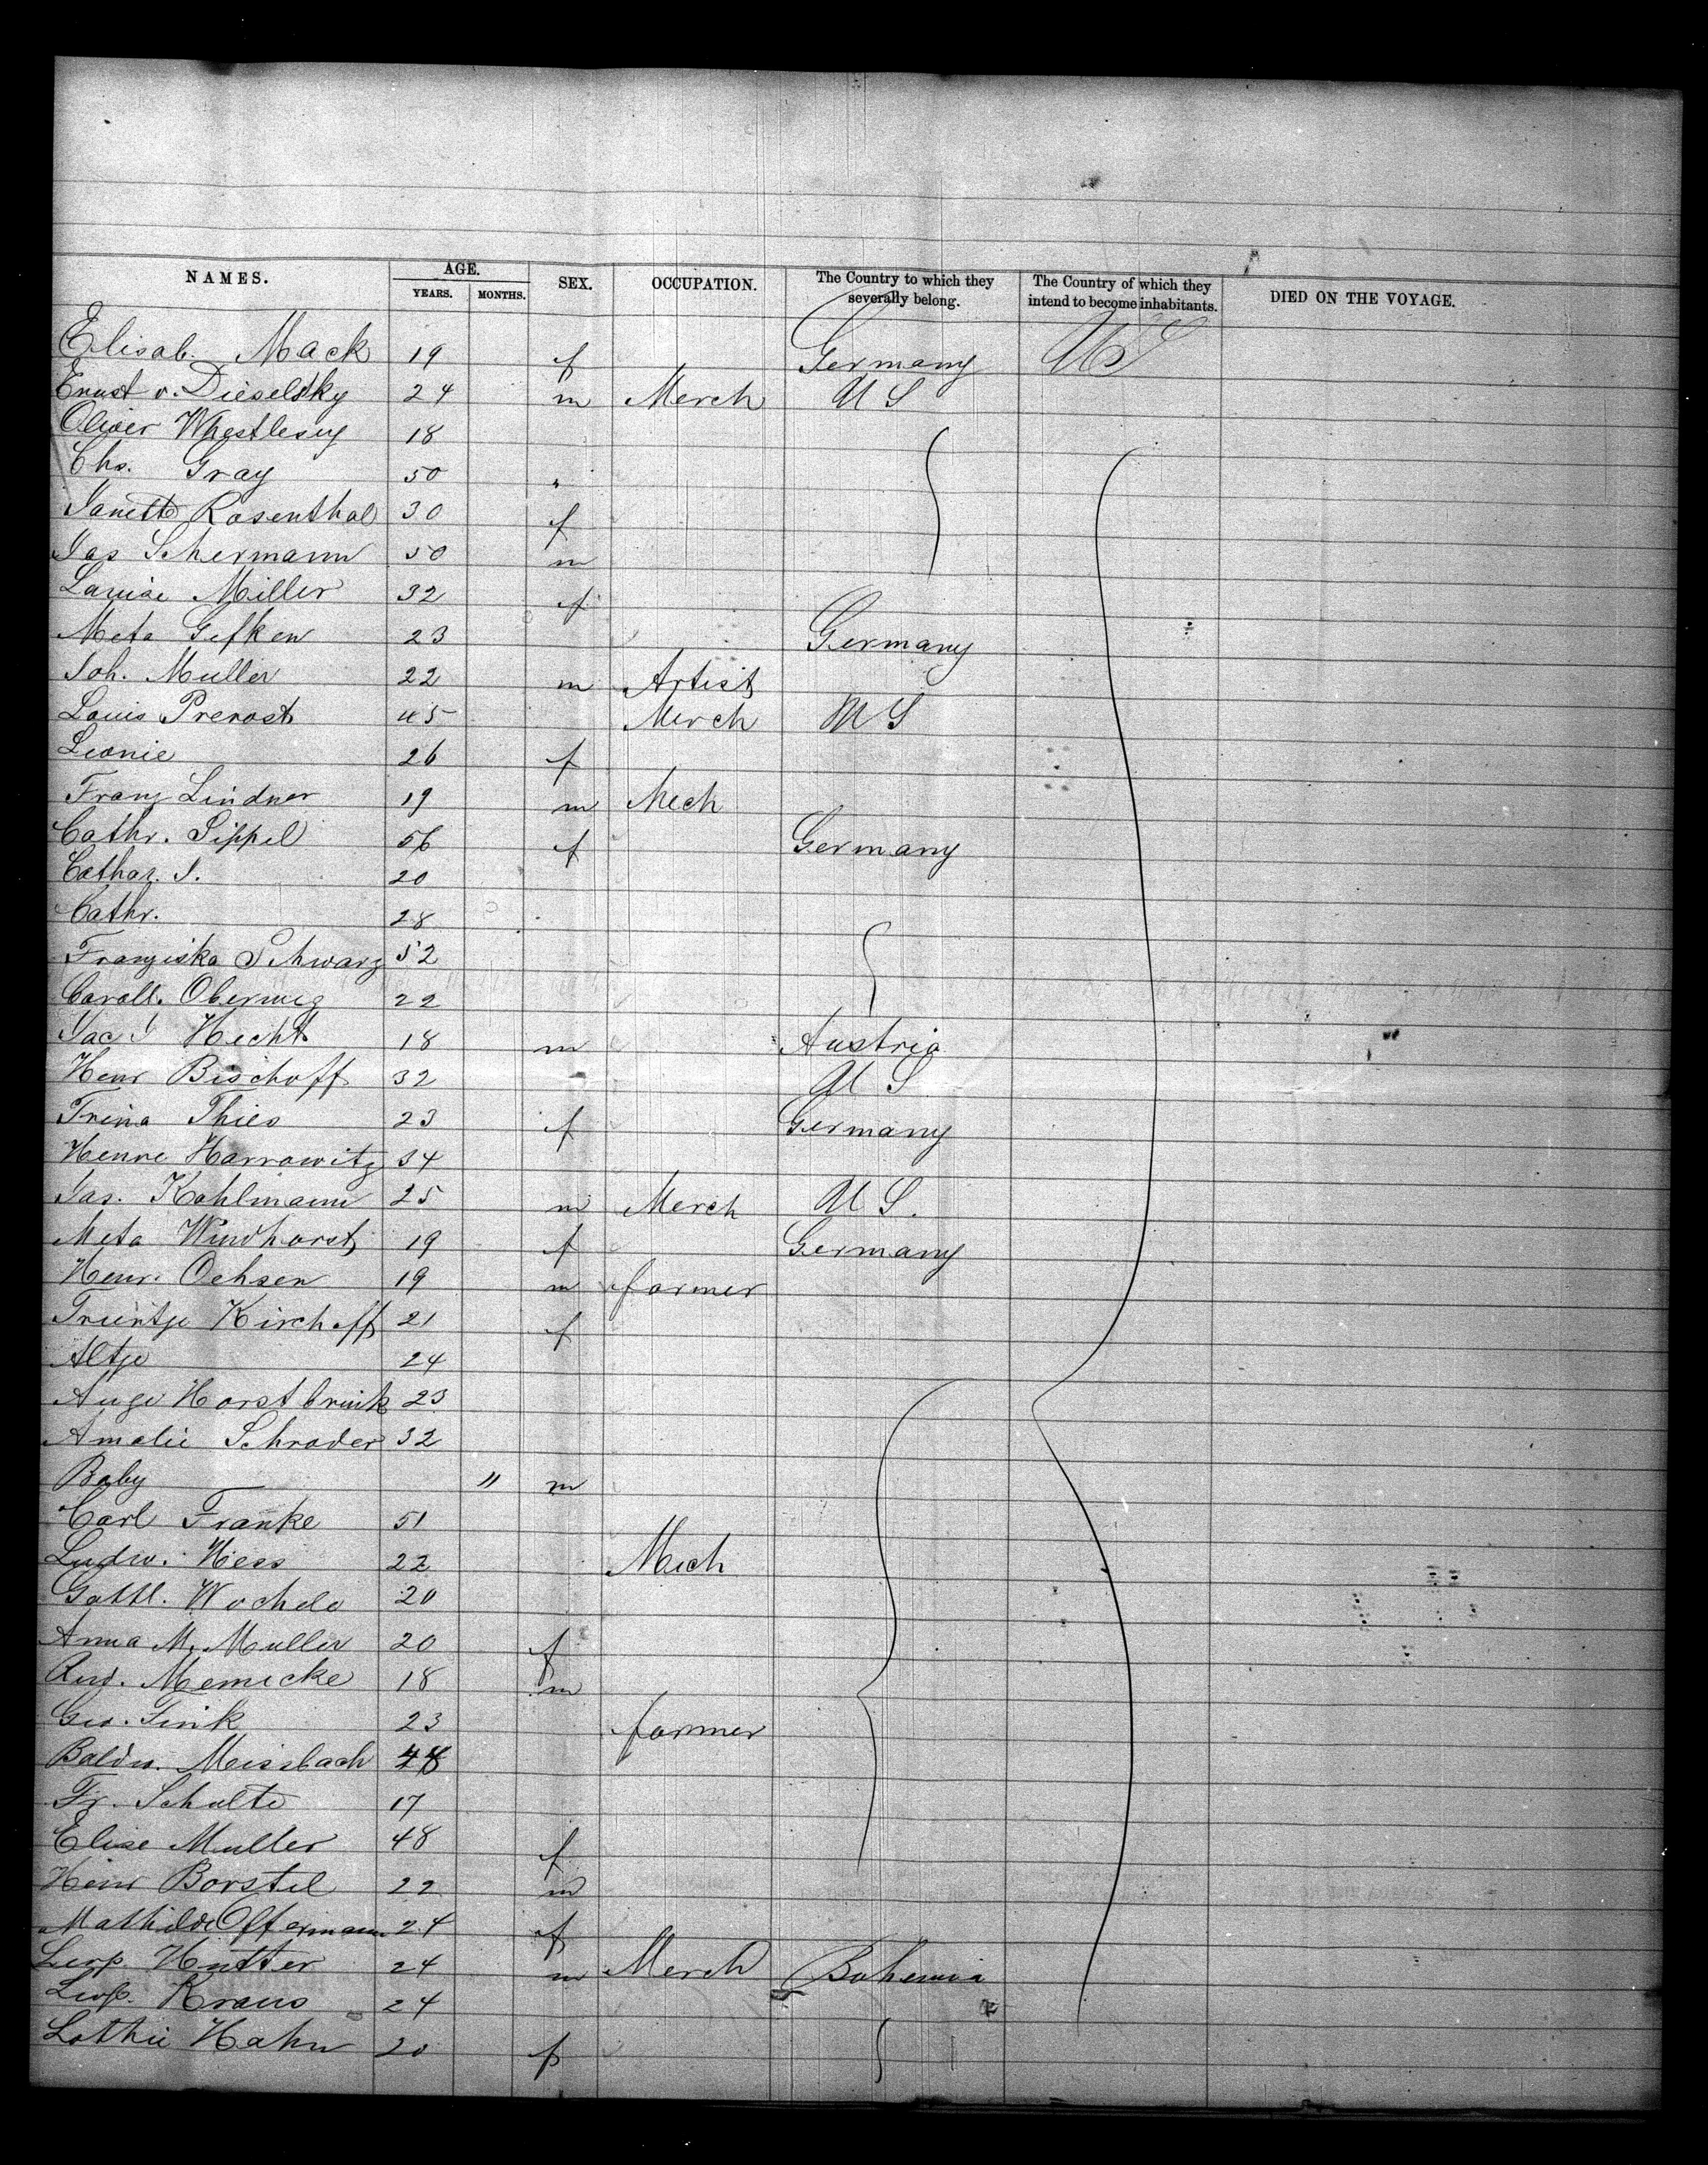 NAMES. AGE. YEARS. MONTHS. SEX. OCCUPATION. The Country to which they severally belong. The Country of which they intend to become inhabitants. DIED ON THE VOYAGE.
Elisab. Mack 19 f Germany US
Ernst v. Dieselsky 24 m Merch U S
Oliver Whestlesey 18
Chs. Gray 50 "
Janette Rosenthal 30 f
Jas Schermann 50 m
Louise Miller 32 f
Meta Gefken 23 Germany
Joh. Muller 22 m Artist
Louis Prevost 45 Merch U S
Leonie 26 f
Franz Lindner 19 m Mech
Cathr. Sippel 56 f Germany
Cathar. S. 20
Cathr. 28
Franziska Schwarz 52
Caroll. Oberweg 22
Jac J Hecht 18 m Austria
Henr Bischoff 32 U S
Trina Thies 23 f Germany
Henre Harrowitz 34
Jas. Kohlmann 25 m Merch U S.
Meta Windhorst 19 f Germany
Henr. Ochsen 19 m farmer
Trientje Kirchoff 21 f
Altje 24
Auge Horstbrink 23
Amalie Schroder 32
Baby " m
Carl Franke 51
Ludw. Hess 22 Mech
Gottl. Wochele 20
Anna M. Muller 20 f
Rud. Meinicke 18 m
Geo. Fink 23 farmer
Baldw. Meissbach 48
Fr. Schulte 17
Elise Muller 48 f
Heinr Borstel 22 m
Mathilde Offermann 24 f
Leop. Hutter 24 m Merch Bohemia
Leop. Kraus 24
Lothie Hahn 20 f